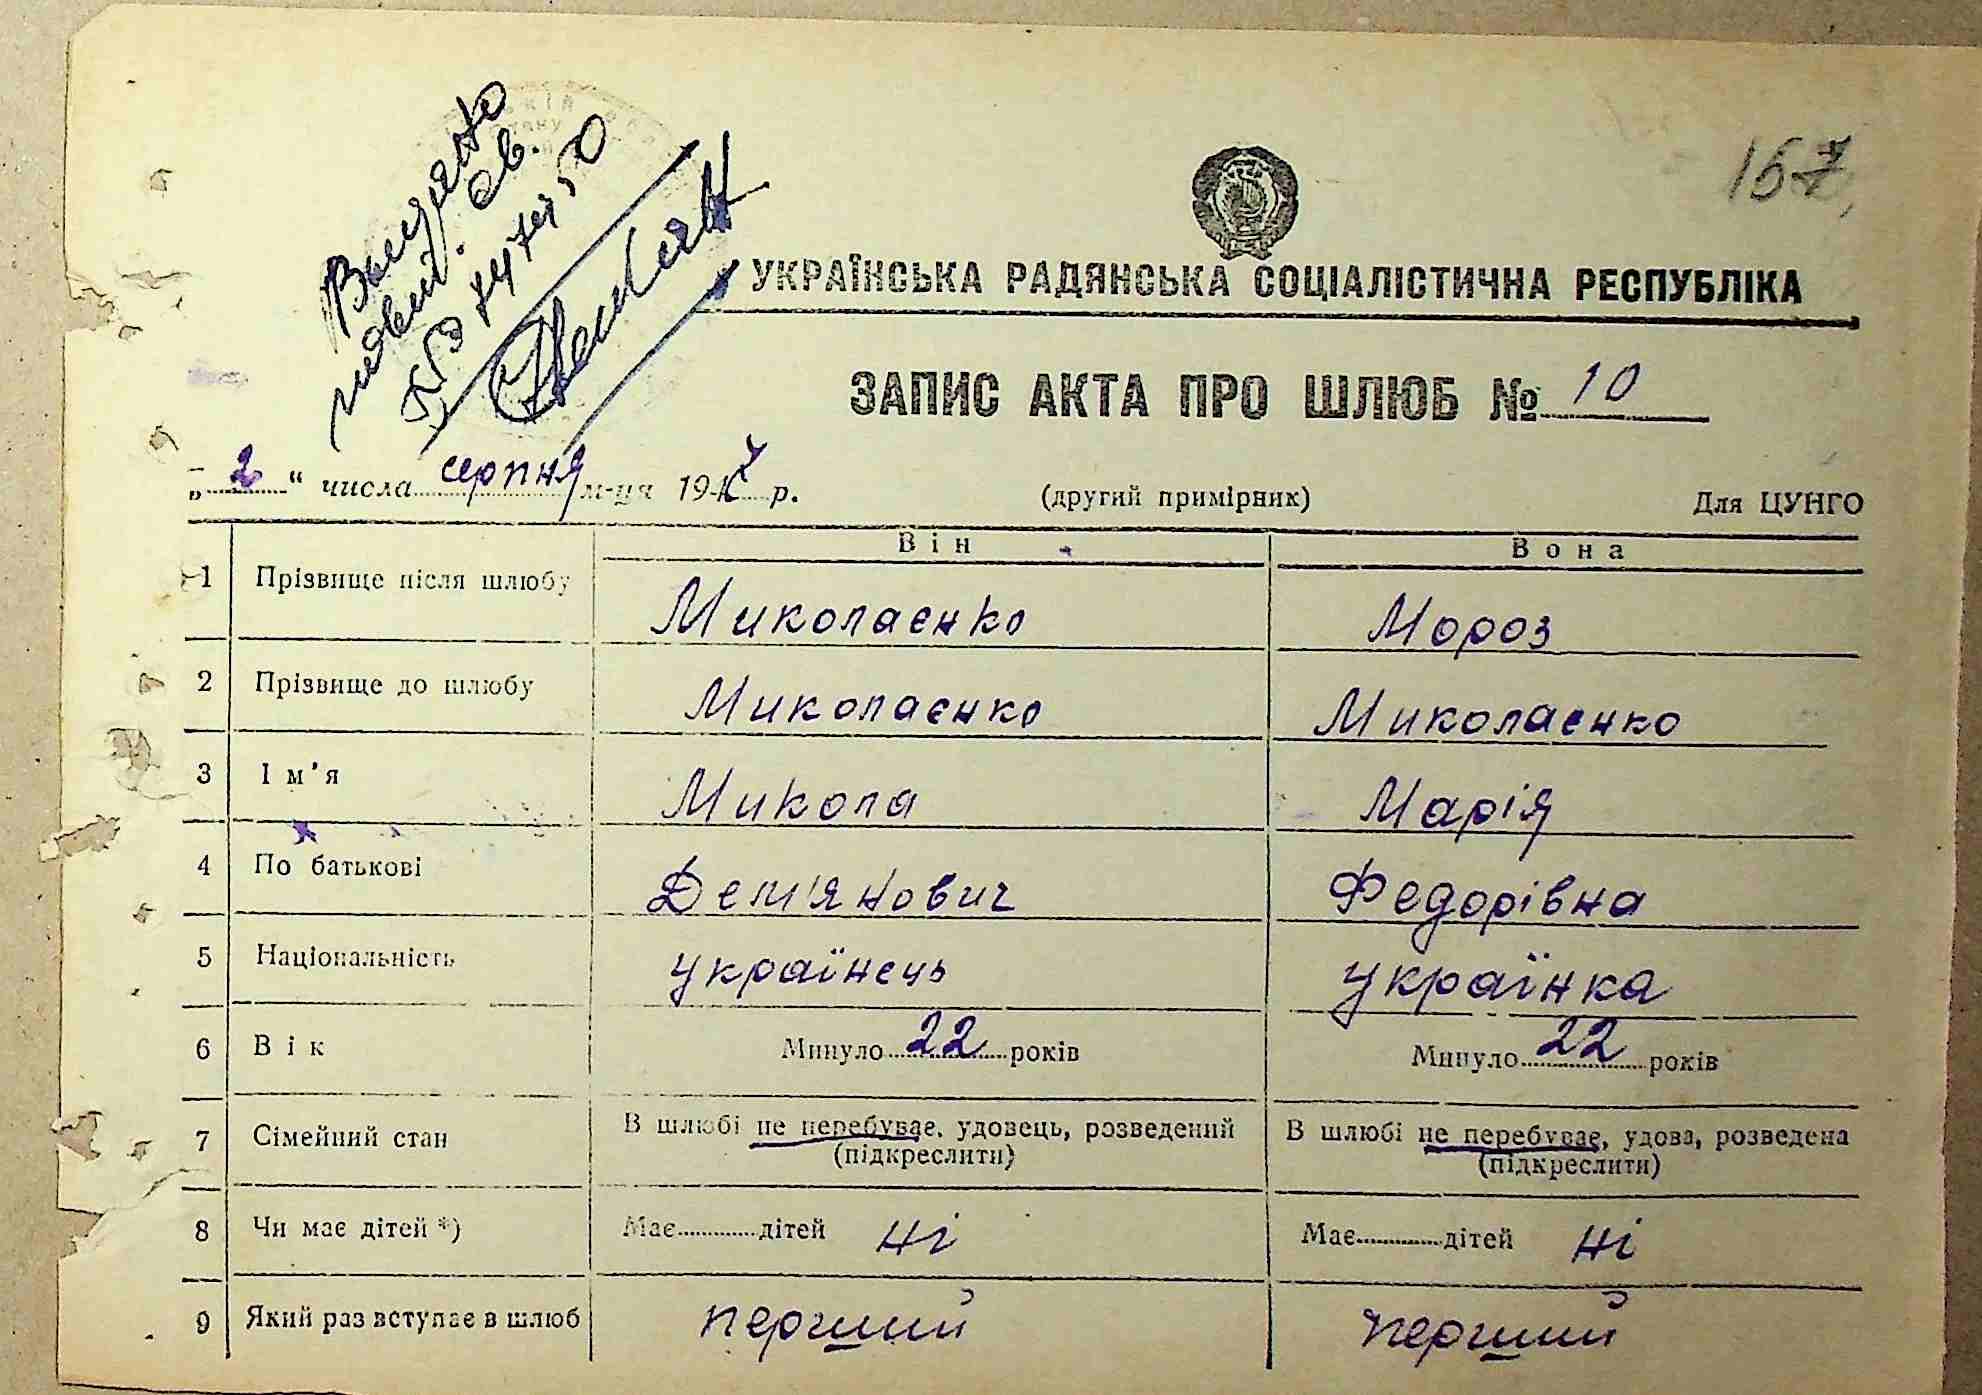 157
УКРАЇНСЬКА РАДЯНСЬКА СОЦІАЛІСТИЧНА РЕСПУБЛІКА
ЗАПИС АКТА ПРО ШЛЮБ № 10
„2“ числа серпня м-ця 1947 р. (другий примірник) Для ЦУНГО
Він Вона
1 Прізвище після шлюбу Миколаєнко Мороз
2 Прізвище до шлюбу Миколаєнко Миколаенко
3 Ім'я Микола Марія
4 По батькові Дем'янович Федорівна
5 Національність українець українка
6 Вік Минуло 22 років Минуло 22 років
7 Сімейний стан В шлюбі не перебуває, удовець, розведений В шлюбі не перебуває, удова, розведена
(підкреслити) (підкреслити)
8 Чи має дітей *) Має дітей ні Має дітей ні
9 Який раз вступає в шлюб перший перший